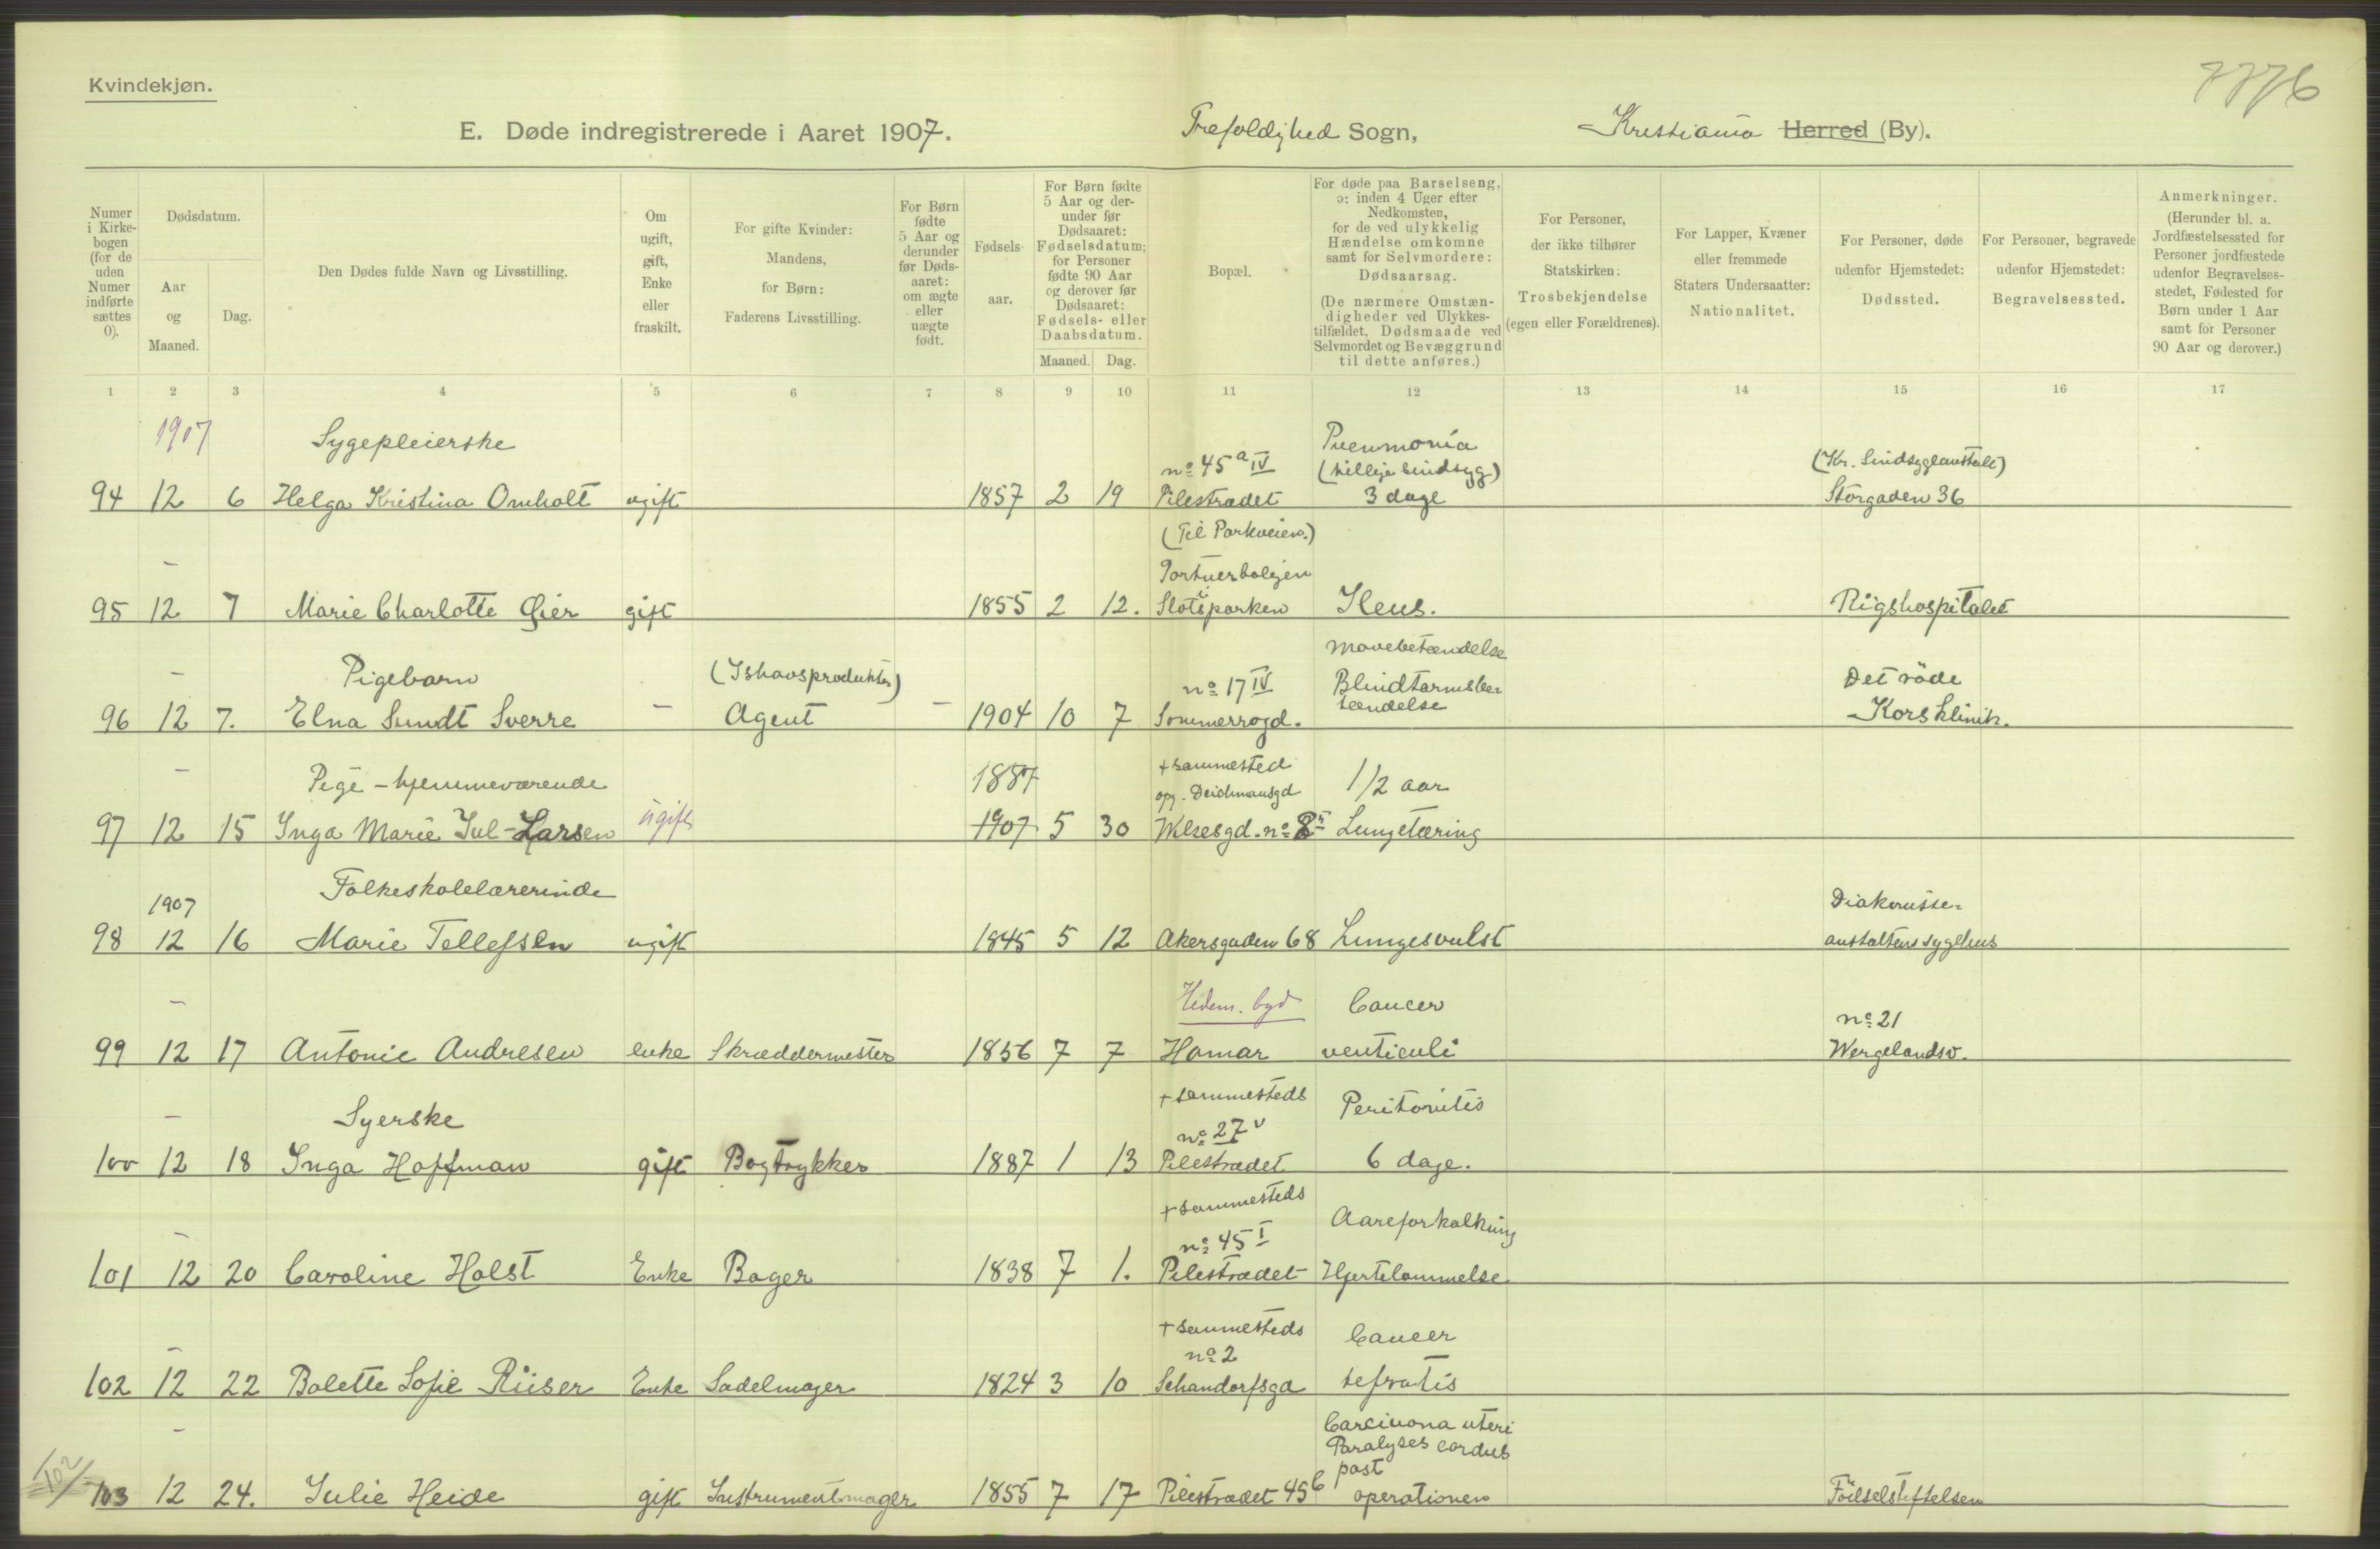 Kvindekjøn.
7776
E. Døde indregistrerede i Aaret 1907.
Trefoldighed Sogn,
Kristiania Herred (By).
Numer i Kirke-bogen (for de uden Numer indførte sættes 0).
Dødsdatum.
Aar og Maaned.
Dag.
Den Dødes fulde Navn og Livsstilling.
Om ugift, gift, Enke eller fraskilt.
For gifte Kvinder: Mandens, for Børn: Faderens Livsstilling.
For Børn fødte 5 Aar og derunder før Døds-aaret: om ægte eller uægte født.
Fødsels-aar.
For Børn fødte 5 Aar og der-under før Dødsaaret: Fødselsdatum; for Personer fødte 90 Aar og derover før Dødsaaret: Fødsels- eller Daabsdatum.
Maaned. Dag.
Bopæl.
For døde paa Barselseng, ɔ: inden 4 Uger efter Nedkomsten, for de ved ulykkelig Hændelse omkomne samt for Selvmordere: Dødsaarsag.
(De nærmere Omstæn-digheder ved Ulykkes-tilfældet, Dødsmaade ved Selvmordet og Bevæggrund til dette anføres.)
For Personer, der ikke tilhører Statskirken: Trosbekjendelse (egen eller Forældrenes).
For Lapper, Kvæner eller fremmede Staters Undersaatter: Nationalitet.
For Personer, døde udenfor Hjemstedet: Dødssted.
For Personer, begravede udenfor Hjemstedet: Begravelsessted.
Anmerkninger. (Herunder bl. a. Jordfæstelsessted for Personer jordfæstede udenfor Begravelses-stedet, Fødested for Børn under 1 Aar samt for Personer 90 Aar og derover.)
1 2 3 4 5 6 7 8 9 10 11 12 13 14 15 16 17
1907 Sygepleierske nº 45 a IV Pneumonia (tillige sindsyg) (Kr. Sindsygeanstalt)
94 12 6 Helga Kristina Omholt ugift 1857 2 19 Pilestrædet 3 dage Storgaden 36
(Til Parkveien.)
- Portnerboligen i
95 12 7 Marie Charlotte Gier gift 1855 2 12. Slotsparken Ileus. Rigshospitalet
Mavebetændelse
- Pigebarn (Ishavsprodukter) nº 17 IV Blindtarmsbe- Det röde
96 12 7. Elna Sundt Sverre - Agent - 1904 10 7 Sommerrogd. tændelse Kors klinik.
- Pige - hjemmeværende 1887 + sammested opg. Deichmansgd 1/2 aar
97 12 15 Inga Marie Jul-Larsen ugift 1907 5 30 Wesselsgd. nº 8 Lungetæring
1907 Folkeskolelærerinde Diakonisse-
98 12 16 Marie Tellefsen ugift 1845 5 12 Akersgaden 68 Lungesvulst anstaltens sygehus
- Hedem. byd Cancer nº 21
99 12 17 Antonie Andresen enke Skræddermester 1856 7 7 Hamar venticuli Wergelandsv.
- Syerske + sammesteds nº 27 V Peritonitis
100 12 18 Inga Hoffman gift Bogtrykker 1887 1 13 Pilestrædet 6 dage.
- + sammesteds nº 45 I Aareforkalkning
101 12 20 Caroline Holst Enke Bager 1838 7 1. Pilestrædet Hjertelammelse
- + sammesteds nº 2 Cancer
102 12 22 Bolette Sofie Riiser Enke Sadelmager 1824 3 10 Schandorfsgd hefratis
- Carcinona uteri
Paralyses cordus
post
102 103 12 24. Julie Heide gift Instrumentmager 1855 7 17 Pilestrædet 45 b operationen Födselstiftelsen